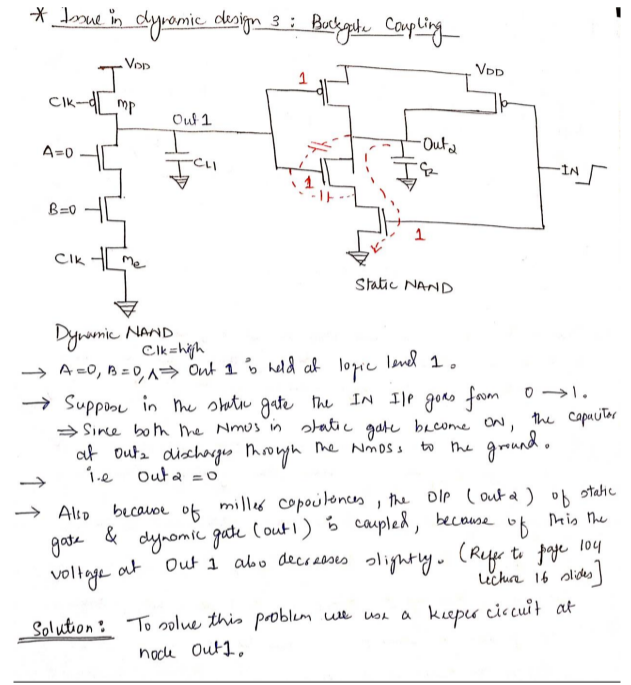 * Issue in dynamic design 3 : Backgate Coupling
VDD
VDD
1
Clk
mp
Out 1
A=0
CL1
Out2
CL2
IN
1
B=0
1
Clk
me
Static NAND
Dynamic NAND
Clk=high
→ A=0, B=0, ∧ ⇒ Out 1 is held at logic level 1.
→ Suppose in the static gate the IN I/P goes from 0 → 1.
⇒ Since both the Nmos in static gate become ON, the capacitor
at out2 discharges through the NMOSs to the ground.
→ i.e Out2 = 0
→ Also because of miller capacitances, the O/P (out2) of static
gate & dynamic gate (out1) is coupled, because of this the
voltage at Out 1 also decreases slightly. (Refer to page 104
lecture 16 slides]
Solution: To solve this problem we use a keeper circuit at
node Out1.